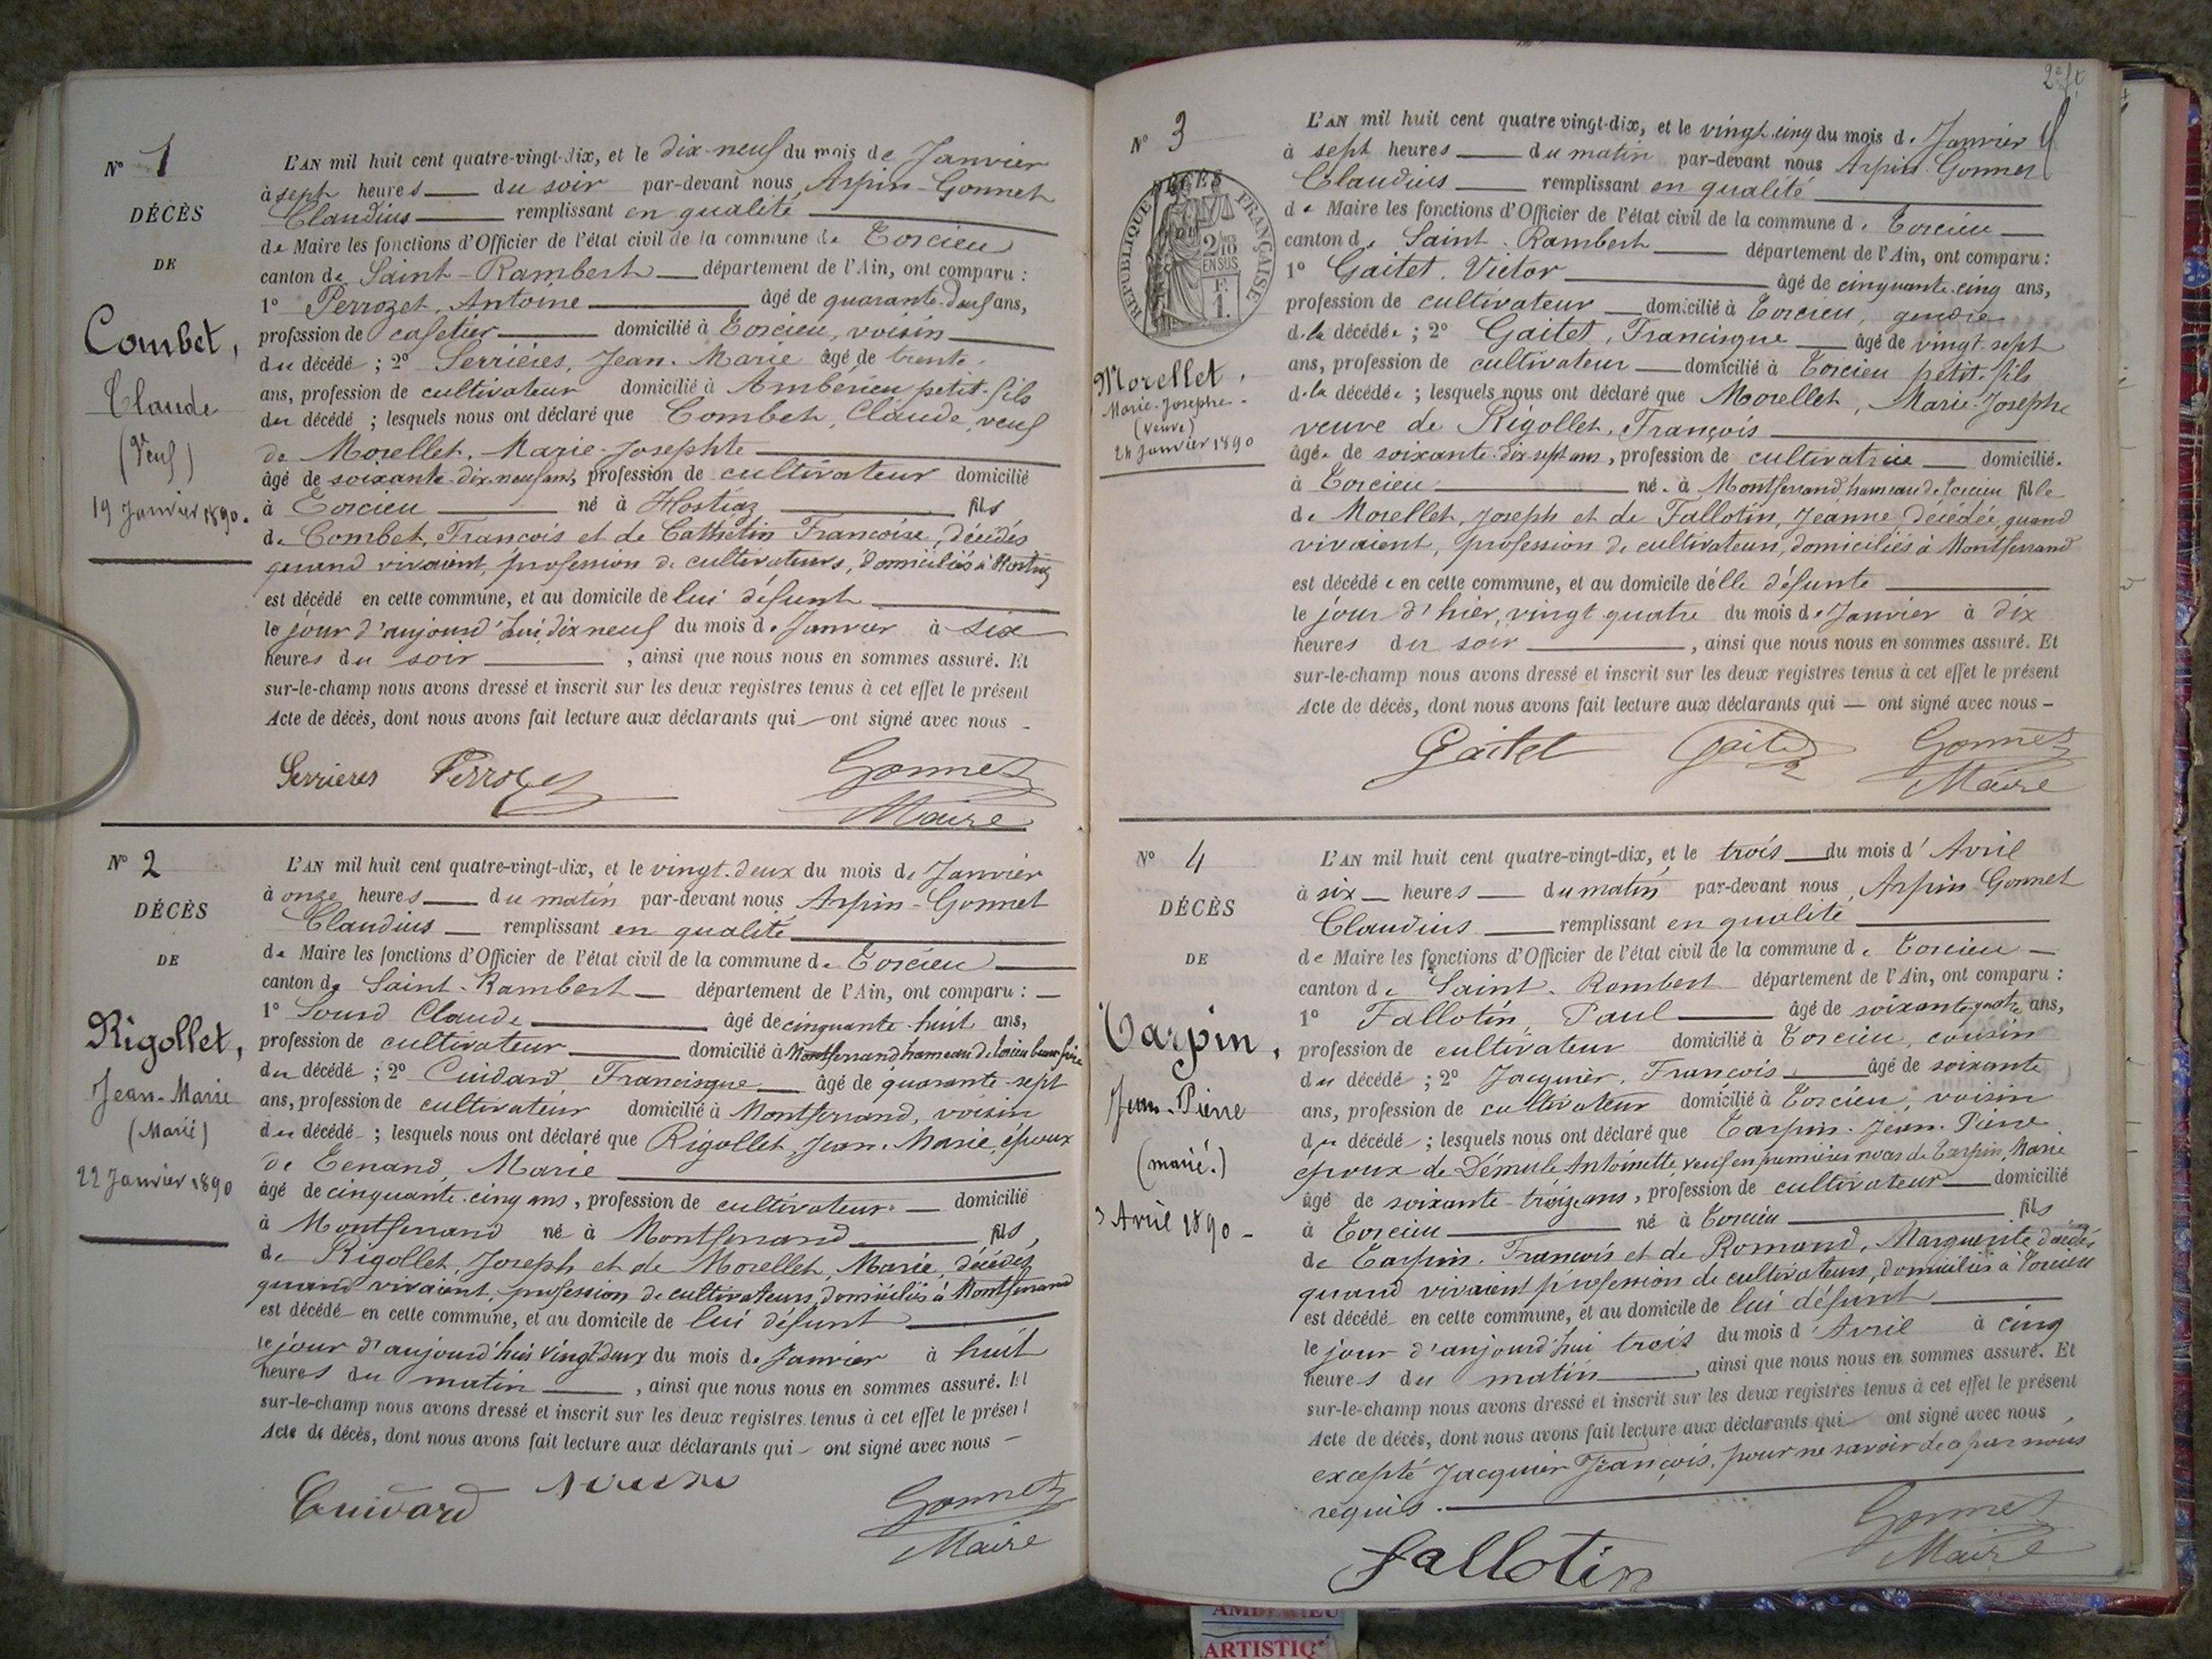 N° 1
DÉCÈS
DE
Combet,
Claude
(Veuf)
19 Janvier 1890.
L'AN mil huit cent quatre-vingt-dix, et le dix-neuf du mois de Janvier
à sept heures du soir par-devant nous Arpin-Gonnet
Claudius remplissant en qualité
de Maire les fonctions d'Officier de l'état civil de la commune de Torcieu
canton de Saint-Rambert département de l'Ain, ont comparu :
1° Perrozet, Antoine âgé de quarante-deux ans,
profession de cafetier domicilié à Torcieu, voisin
du décédé ; 2° Serrières, Jean-Marie âgé de trente
ans, profession de cultivateur domicilié à Ambérieu petit-fils
du décédé ; lesquels nous ont déclaré que Combet, Claude, veuf
de Morellet, Marie-Josephte
âgé de soixante-dix-neuf ans, profession de cultivateur domicilié
à Torcieu né à Hostiaz fils
de Combet, François et de Françoise, décédés
quand vivaient, profession de cultivateurs, domiciliés à Hostiaz
est décédé en cette commune, et au domicile de lui défunt
le jour d'aujourd'hui dix neuf du mois de Janvier à six
heures du soir, ainsi que nous nous en sommes assuré. Et
sur-le-champ nous avons dressé et inscrit sur les deux registres tenus à cet effet le présent
Acte de décès, dont nous avons fait lecture aux déclarants qui ont signé avec nous
Serrieres Perrozet Gonnet
Maire
N° 2
DÉCÈS
DE
Rigollet,
Jean-Marie
(Marié)
22 Janvier 1890
L'AN mil huit cent quatre-vingt-dix, et le vingt-deux du mois de Janvier
à onze heures du matin par-devant nous Arpin-Gonnet
Claudius remplissant en qualité
de Maire les fonctions d'Officier de l'état civil de la commune de Torcieu
canton de Saint-Rambert département de l'Ain, ont comparu :
1° Sourd Claude âgé de cinquante-huit ans,
profession de cultivateur domicilié à Montferrand hameau de Torcieu beau frère
du décédé ; 2° Cuidard Francisque âgé de quarante-sept
ans, profession de cultivateur domicilié à Montferrand, voisin
du décédé ; lesquels nous ont déclaré que Rigollet, Jean-Marie, époux
de Tenand, Marie
âgé de cinquante-cinq ans, profession de cultivateur domicilié
à Montferrand né à Montferrand fils
de Rigollet, Joseph et de Morellet, Marie, décédés
quand vivaient, profession de cultivateurs, domiciliés à Montferrand
est décédé en cette commune, et au domicile de lui défunt
le jour d'aujourd'hui vingt deux du mois de Janvier à huit
heures du matin, ainsi que nous nous en sommes assuré. Et
sur-le-champ nous avons dressé et inscrit sur les deux registres tenus à cet effet le présent
Acte de décès, dont nous avons fait lecture aux déclarants qui ont signé avec nous
Cuidard Gonnet
Maire
N° 3
DÉCÈS
RÉPUBLIQUE FRANÇAISE
2/10 EN SUS
F. 1.
Morellet,
Marie-Josephe
(Veuve)
24 Janvier 1890
L'AN mil huit cent quatre-vingt-dix, et le vingt-cinq du mois de Janvier
à sept heures du matin par-devant nous Arpin-Gonnet
Claudius remplissant en qualité
de Maire les fonctions d'Officier de l'état civil de la commune de Torcieu
canton de Saint-Rambert département de l'Ain, ont comparu :
1° Gaitet, Victor âgé de cinquante-cinq ans,
profession de cultivateur domicilié à Torcieu, gendre
de la décédée ; 2° Gaitet, Francisque âgé de vingt-sept
ans, profession de cultivateur domicilié à Torcieu petit-fils
de la décédée ; lesquels nous ont déclaré que Morellet, Marie-Josephe
veuve de Rigollet, François
âgée de soixante-dix-sept ans, profession de cultivatrice domiciliée
à Torcieu née à Montferrand hameau de Torcieu fille
de Morellet, Joseph et de Fallotin, Jeanne, décédés, quand
vivaient, profession de cultivateurs, domiciliés à Montferrand
est décédée en cette commune, et au domicile d'elle défunte
le jour d'hier, vingt quatre du mois de Janvier à dix
heures du soir, ainsi que nous nous en sommes assuré. Et
sur-le-champ nous avons dressé et inscrit sur les deux registres tenus à cet effet le présent
Acte de décès, dont nous avons fait lecture aux déclarants qui ont signé avec nous
Gaitet Gaitet Gonnet
Maire
N° 4
DÉCÈS
DE
Tarpin,
Jean-Pierre
(marié.)
3 Avril 1890
L'AN mil huit cent quatre-vingt-dix, et le trois du mois d'Avril
à six heures du matin par-devant nous Arpin Gonnet
Claudius remplissant en qualité
de Maire les fonctions d'Officier de l'état civil de la commune de Torcieu
canton de Saint-Rambert département de l'Ain, ont comparu :
1° Fallotin, Paul âgé de soixante-quatre ans,
profession de cultivateur domicilié à Torcieu, cousin
du décédé ; 2° Jacquier, François âgé de soixante
ans, profession de cultivateur domicilié à Torcieu, voisin
du décédé ; lesquels nous ont déclaré que Tarpin, Jean-Pierre
époux de Démule Antoinette, veuf en premières noces de Tarpin, Marie
âgé de soixante-treize ans, profession de cultivateur domicilié
à Torcieu né à Torcieu fils
de Tarpin, François et de Romand, Marguerite, décédés
quand vivaient profession de cultivateurs, domiciliés à Torcieu
est décédé en cette commune, et au domicile de lui défunt
le jour d'aujourd'hui trois du mois d'Avril à cinq
heures du matin, ainsi que nous nous en sommes assuré. Et
sur-le-champ nous avons dressé et inscrit sur les deux registres tenus à cet effet le présent
Acte de décès, dont nous avons fait lecture aux déclarants qui ont signé avec nous,
excepté Jacquier François, pour ne savoir de a par nous
requis.
Fallotin Gonnet
Maire
AMBERIEU
ARTISTIQ